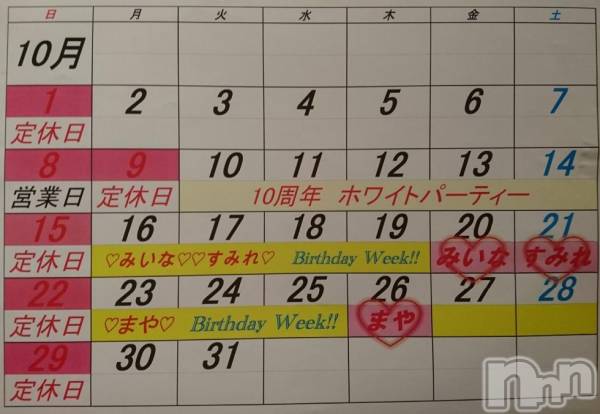 日 月 火 水 木 金 土
10月
1 2 3 4 5 6 7
定休日
8 9 10 11 12 13 14
営業日 定休日 10周年 ホワイトパーティー
15 16 17 18 19 20 21
定休日 ♡みいな♡♡すみれ♡ Birthday Week!! みいな すみれ
22 23 24 25 26 27 28
定休日 ♡まや♡ Birthday Week!! まや
29 30 31
定休日
nnn